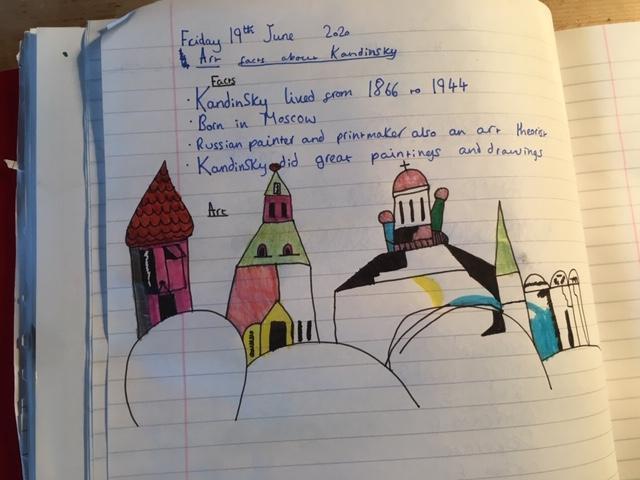 Friday 19th June 2020
Art facts about Kandinsky
Facts
· Kandinsky lived from 1866 to 1944
· Born in Moscow
· Russian painter and printmaker also an art theorist
· Kandinsky did great paintings and drawings
Art